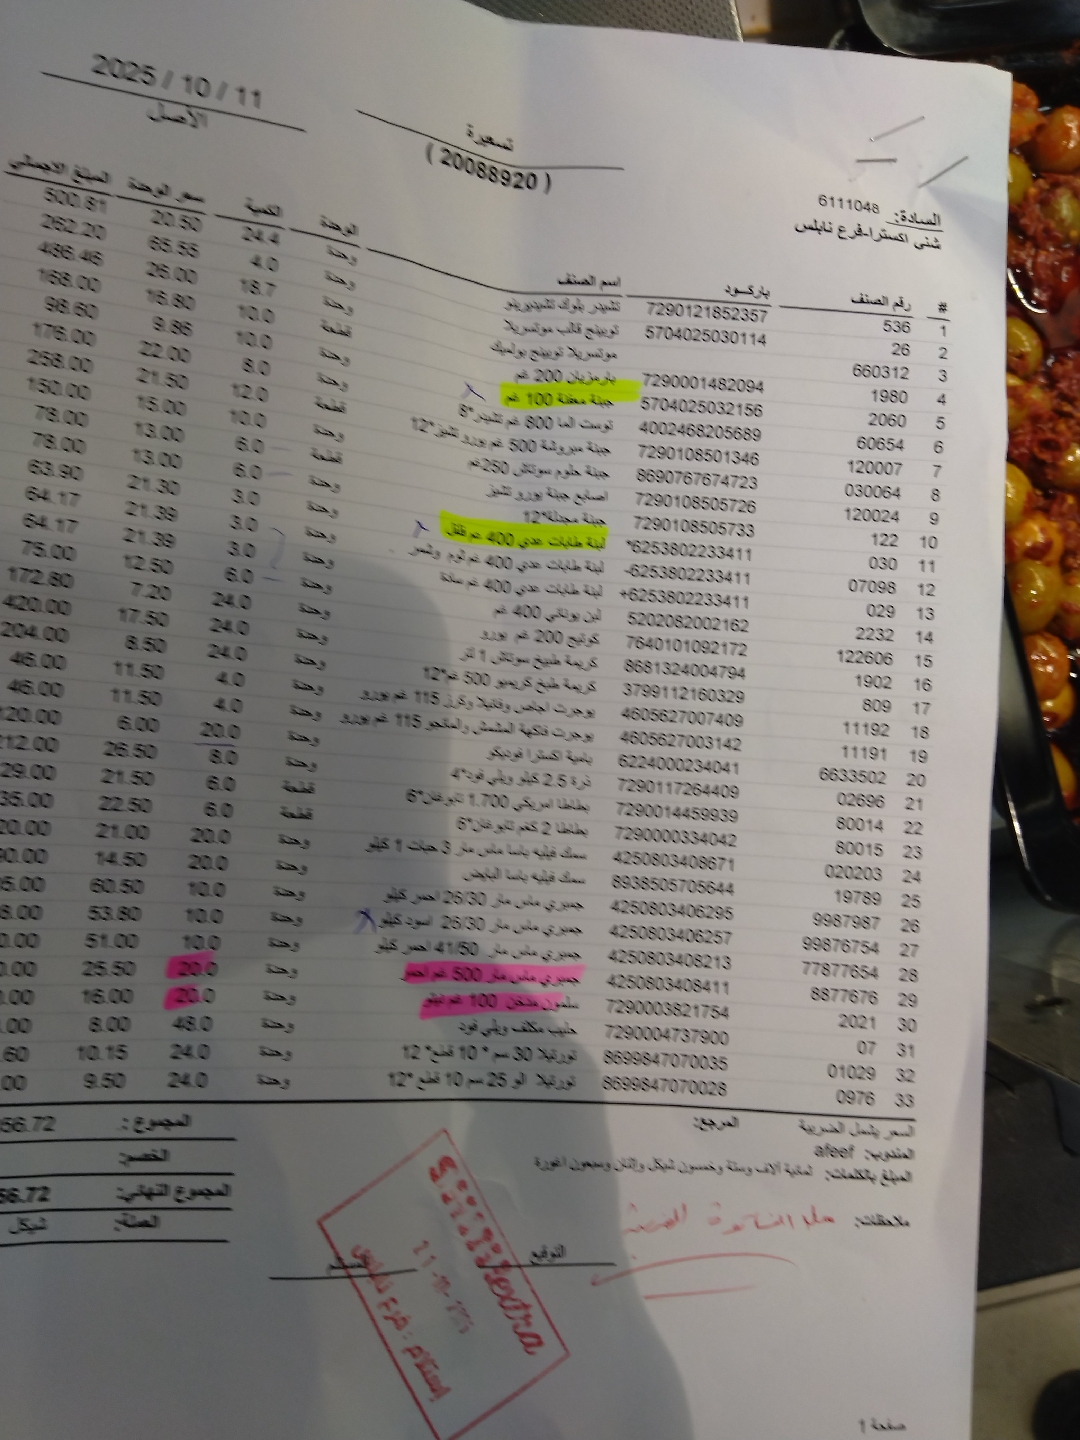 2025 / 10 / 11
الأصل
تسعيرة
( 20088920 )
السادة: 6111048
شني اكسترا-فرع نابلس
# رقم الصنف باركود اسم الصنف الوحدة الكمية سعر الوحدة المبلغ الاجمالي
1 536 7290121852357 تشيدر بلوك تشيديريلو وحدة 24.4 20.50 500.81
2 26 5704025030114 توبينج قالب موتسريلا وحدة 4.0 65.55 262.20
3 660312 موتسريلا توبينج بولميك وحدة 18.7 26.00 486.46
4 1980 7290001482094 بارمزيان 200 غم قطعة 10.0 16.80 168.00
5 2060 5704025032156 جبنة معفنة 100 غم وحدة 10.0 9.86 98.60
6 60654 4002468205689 توست الما 800 غم تشيدر*8 وحدة 8.0 22.00 176.00
7 120007 7290108501346 جبنة مبروشة 500 غم يورو تشيز*12 قطعة 12.0 21.50 258.00
8 030064 8690767674723 جبنة حلوم سوتاش 250غم وحدة 10.0 15.00 150.00
9 120024 7290108505726 اصابع جبنة يورو تشيز قطعة 6.0 13.00 78.00
10 122 7290108505733 جبنة مجدلة*12 وحدة 6.0 13.00 78.00
11 030 6253802233411* لبنة طابات عدي 400 غم فلفل وحدة 3.0 21.30 63.90
12 07098 6253802233411- لبنة طابات عدي 400 غم ثوم وشمر وحدة 3.0 21.39 64.17
13 029 6253802233411+ لبنة طابات عدي 400 غم سادة وحدة 3.0 21.39 64.17
14 2232 5202082002162 لبن يوناني 400 غم وحدة 6.0 12.50 75.00
15 122606 7640101092172 كوتيج 200 غم يورو وحدة 24.0 7.20 172.80
16 1902 8681324004794 كريمة طبخ سوتاش 1 لتر وحدة 24.0 17.50 420.00
17 809 3799112160329 كريمة طبخ كريميو 500 غم*12 وحدة 24.0 8.50 204.00
18 11192 4605627007409 يوجرت اجاص وفانيلا وكرز 115 غم يورو وحدة 4.0 11.50 46.00
19 11191 4605627003142 يوجرت فاكهة المشمش والمانجو 115 غم يورو وحدة 4.0 11.50 46.00
20 6633502 6224000234041 بامية اكسترا فوديكو وحدة 20.0 6.00 120.00
21 02696 7290117264409 ذرة 2.5 كيلو ويلي فود*4 وحدة 8.0 26.50 212.00
22 80014 7290014459939 بطاطا امريكي 1.700 تابوغان*6 قطعة 6.0 21.50 29.00
23 80015 7290000334042 بطاطا 2 كغم تابوغان*6 قطعة 6.0 22.50 35.00
24 020203 4250803408671 سمك فيليه باسا ماس مار 3 حبات 1 كيلو وحدة 20.0 21.00 20.00
25 19789 8938505705644 سمك فيليه باسا البايض وحدة 20.0 14.50 90.00
26 9987987 4250803406295 جمبري ماس مار 26/30 احمر كيلو وحدة 10.0 60.50 05.00
27 99876754 4250803406257 جمبري ماس مار 26/30 اسود كيلو وحدة 10.0 53.80 8.00
28 77877654 4250803408213 جمبري ماس مار 41/50 احمر كيلو وحدة 10.0 51.00 0.00
29 8877676 4250803408411 جمبري ماس مار 500 غم احمر وحدة 20.0 25.50 0.00
30 2021 7290003821754 سلمون مدخن 100 غم نيلو وحدة 20.0 16.00 .00
31 07 7290004737900 حليب مكثف ويلي فود وحدة 48.0 8.00 .00
32 01029 8699847070035 تورتيلا 30 سم * 10 قطع* 12 وحدة 24.0 10.15 .60
33 0976 8699847070028 تورتيلا الو 25 سم 10 قطع *12 وحدة 24.0 9.50 00
السعر يشمل الضريبة المرجع: المجموع: 56.72
المندوب: afeef الخصم:
المبلغ بالكلمات: ثمانية آلاف وستة وخمسون شيكل واثنان وسبعون اغورة المجموع النهائي: 56.72
العملة: شيكل
ملاحظات:
التوقيع
extra
استلام: فرع نابلس
صفحة 1